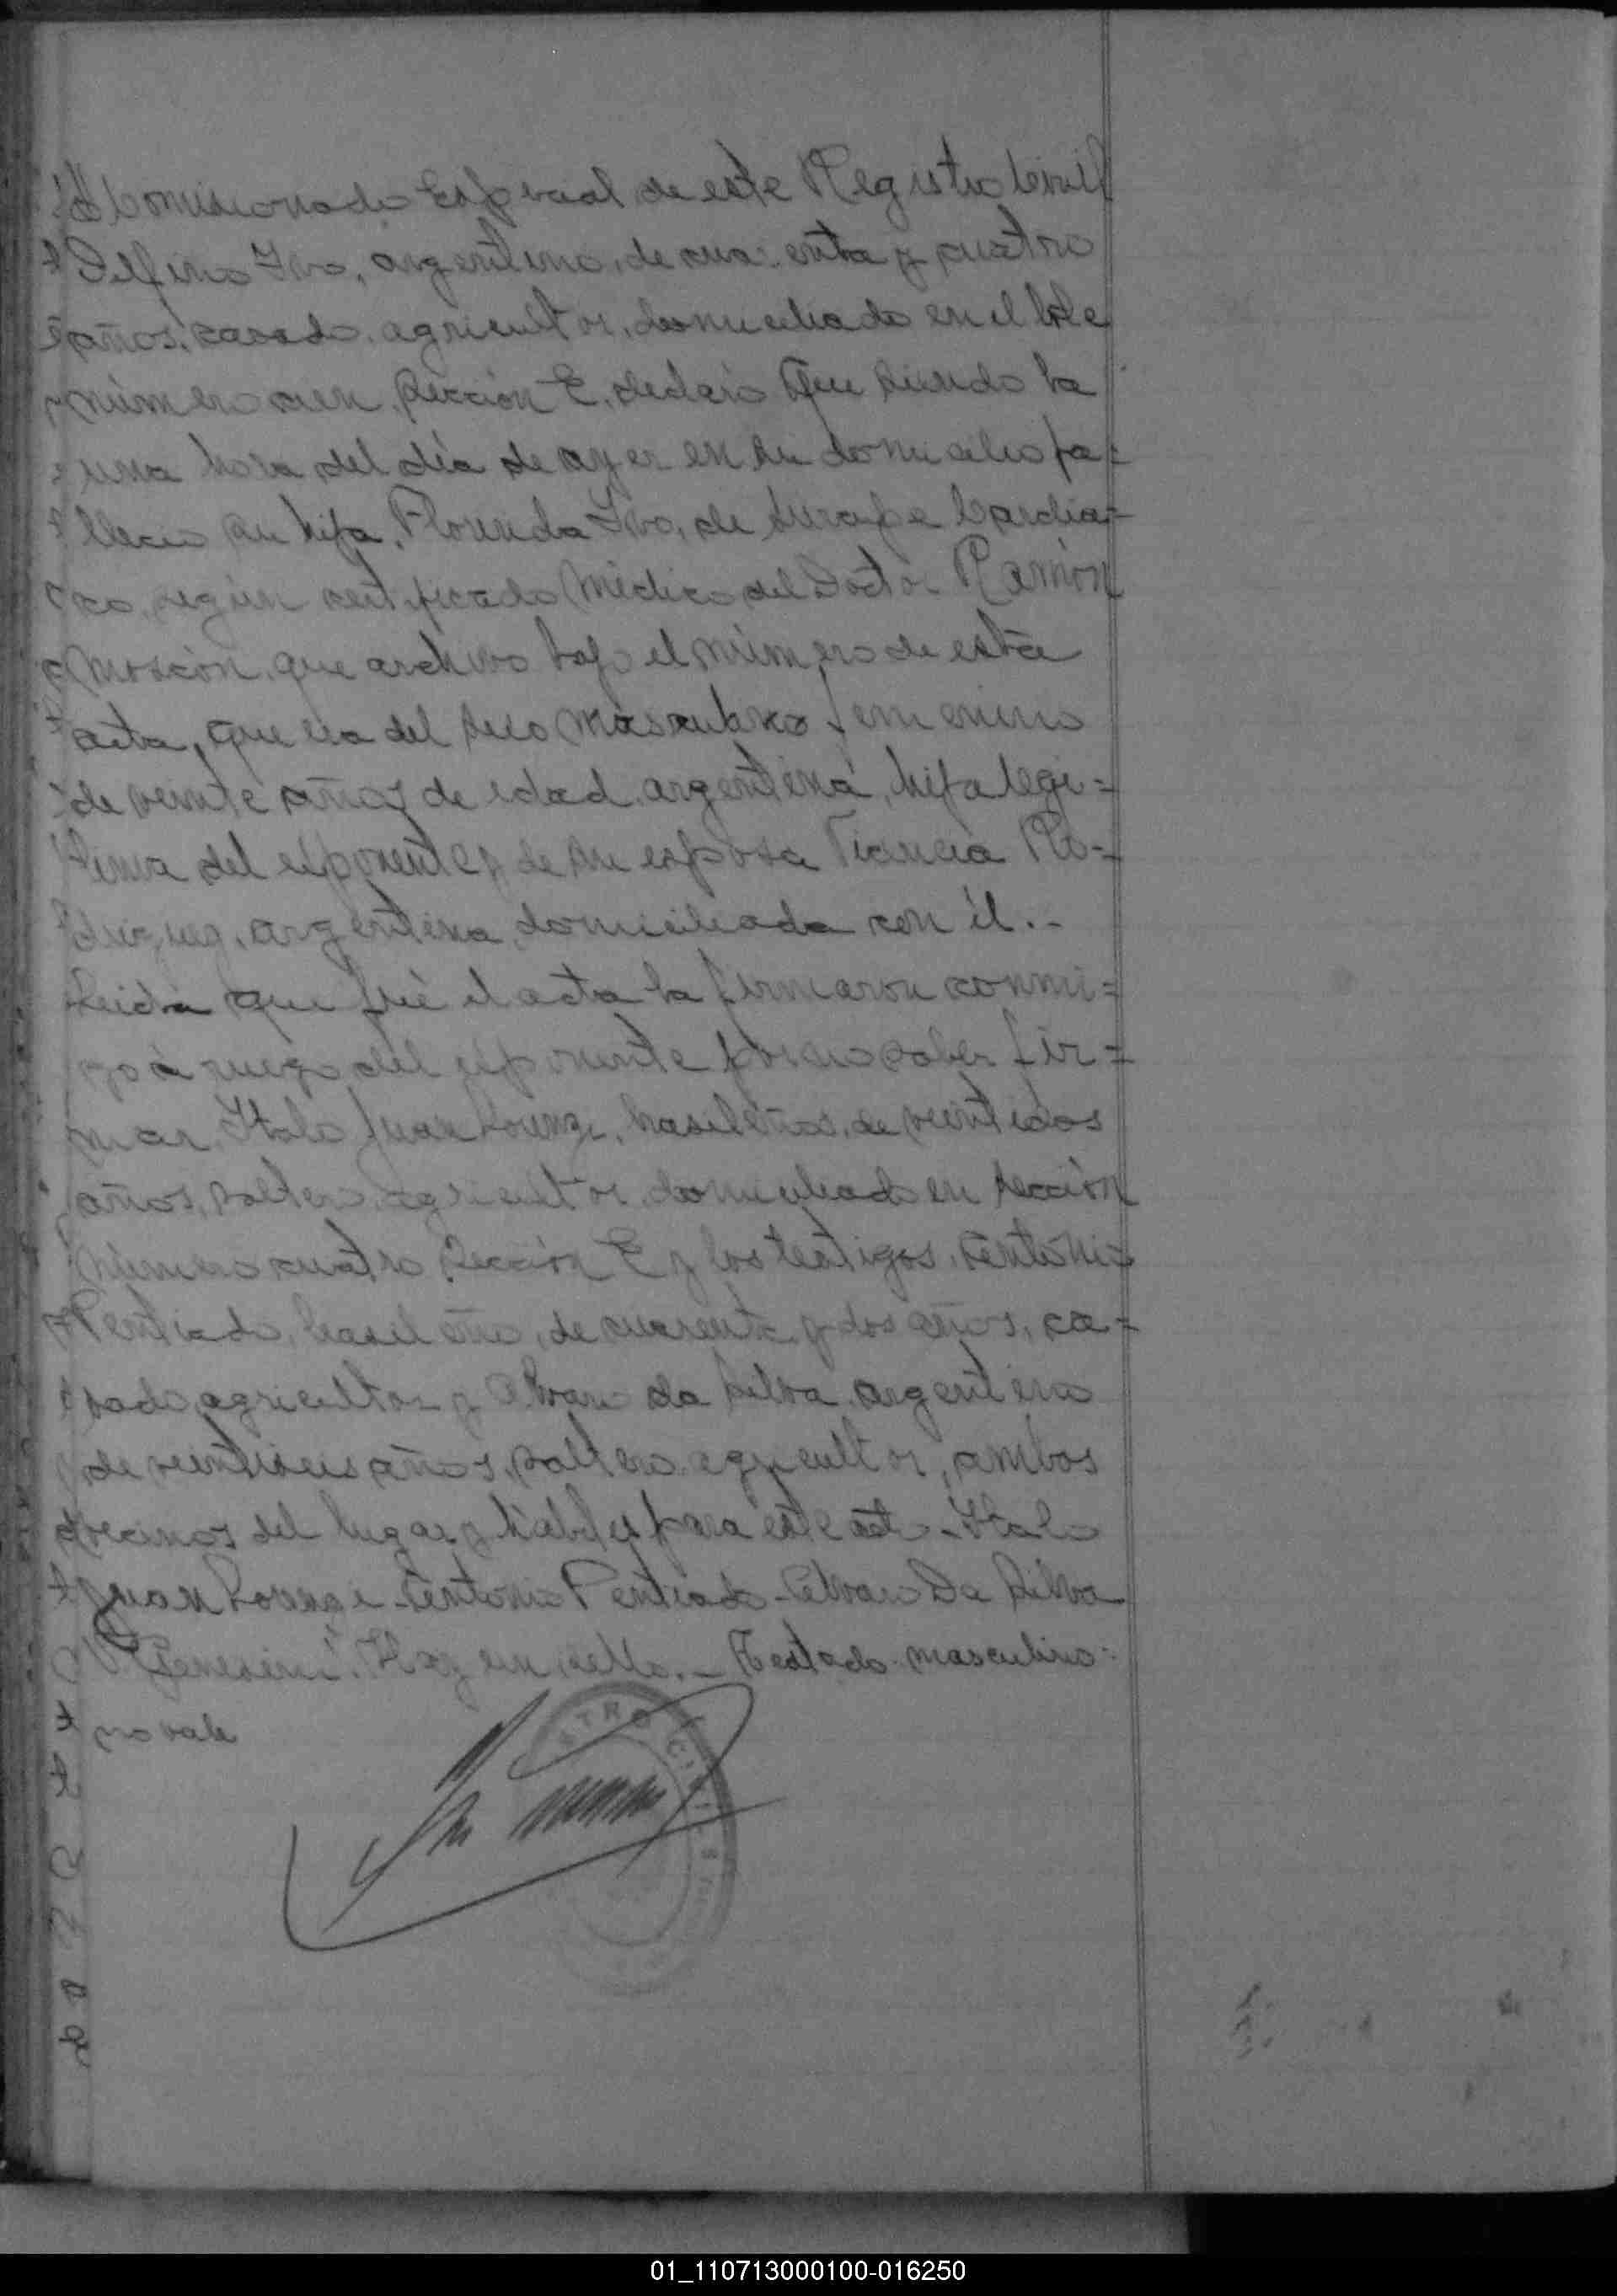 Comisionado Especial de este Registro Civil
Delfino Ivo, argentino, de cuarenta y cuatro
años, casado, agricultor, domiciliado en el lote
número cien, Sección E, declaró Que siendo la
una hora del día de ayer en su domicilio fa=
lleció su hija, Florinda Ivo, de Cardía=
co, según certificado Médico del Doctor Ramón
que archivo bajo el número de esta
acta, que era del sexo masculino femenino
de veinte años de edad, argentina, hija legi=
tima del exponente y de su esposa Ro=
driguez, argentina, domiciliada con él.-
Leida que fué el acta la firmaron conmi=
go á ruego del exponente por no saber fir=
mar, Italo Juan brasileño, de veintidos
años, soltero, agricultor, domiciliado en sección
número cuatro Sección E y los testigos, Antonio
Pentiado, brasileño, de cuarenta y dos años, ca=
sado, agricultor y Alvaro da Silva, argentino
de veintiseis años, soltero, agricultor, ambos
vecinos del lugar y hábiles para este acto - Italo
Juan - Antonio Pentiado - Alvaro Da Silva
Hay un sello. - Testado: masculino:
no vale
TRO CIVIL
01_110713000100-016250